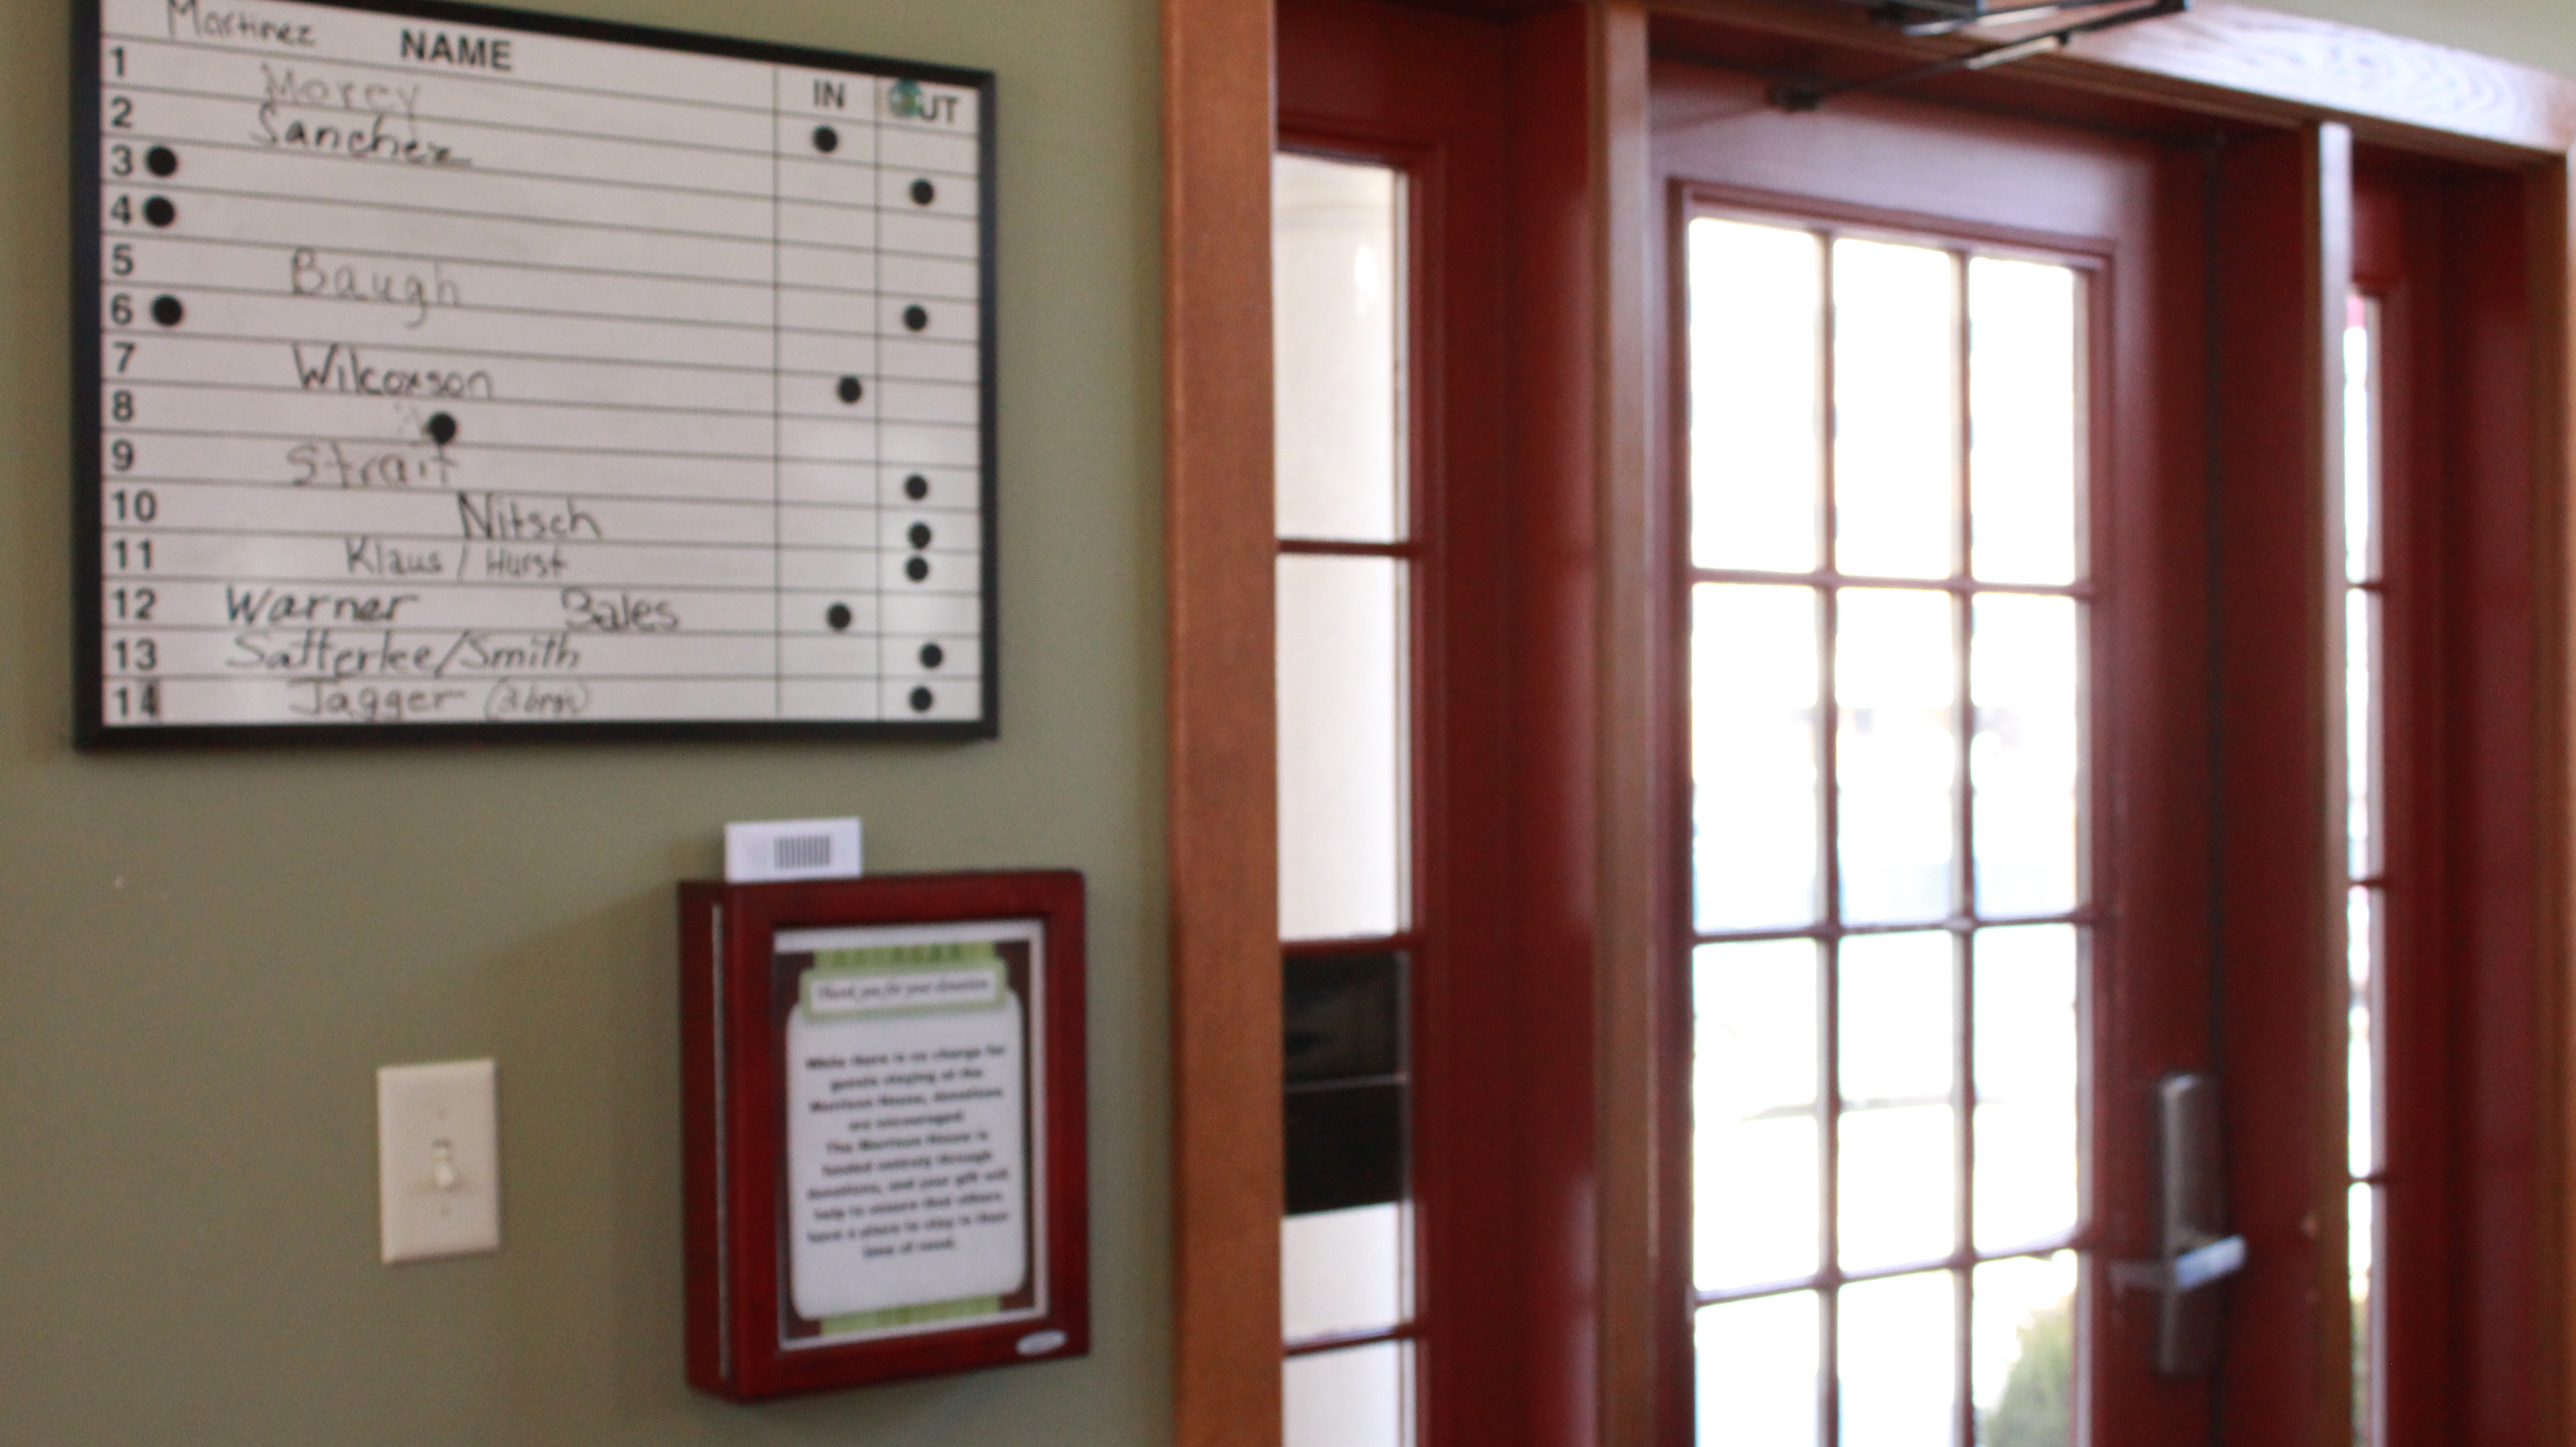 Martinez NAME
1 Morey IN OUT
2 Sanchez
3
4
5 Baugh
6
7 Wilcoxson
8
9 Strait
10 Nitsch
11 Klaus / Hurst
12 Warner Bales
13 Satterlee/Smith
14 Jagger
Thank you for your donation
While there is no charge for
guests staying at the
Morrison House, donations
are encouraged.
The Morrison House is
funded entirely through
donations, and your gift will
help to ensure that others
have a place to stay in their
time of need.